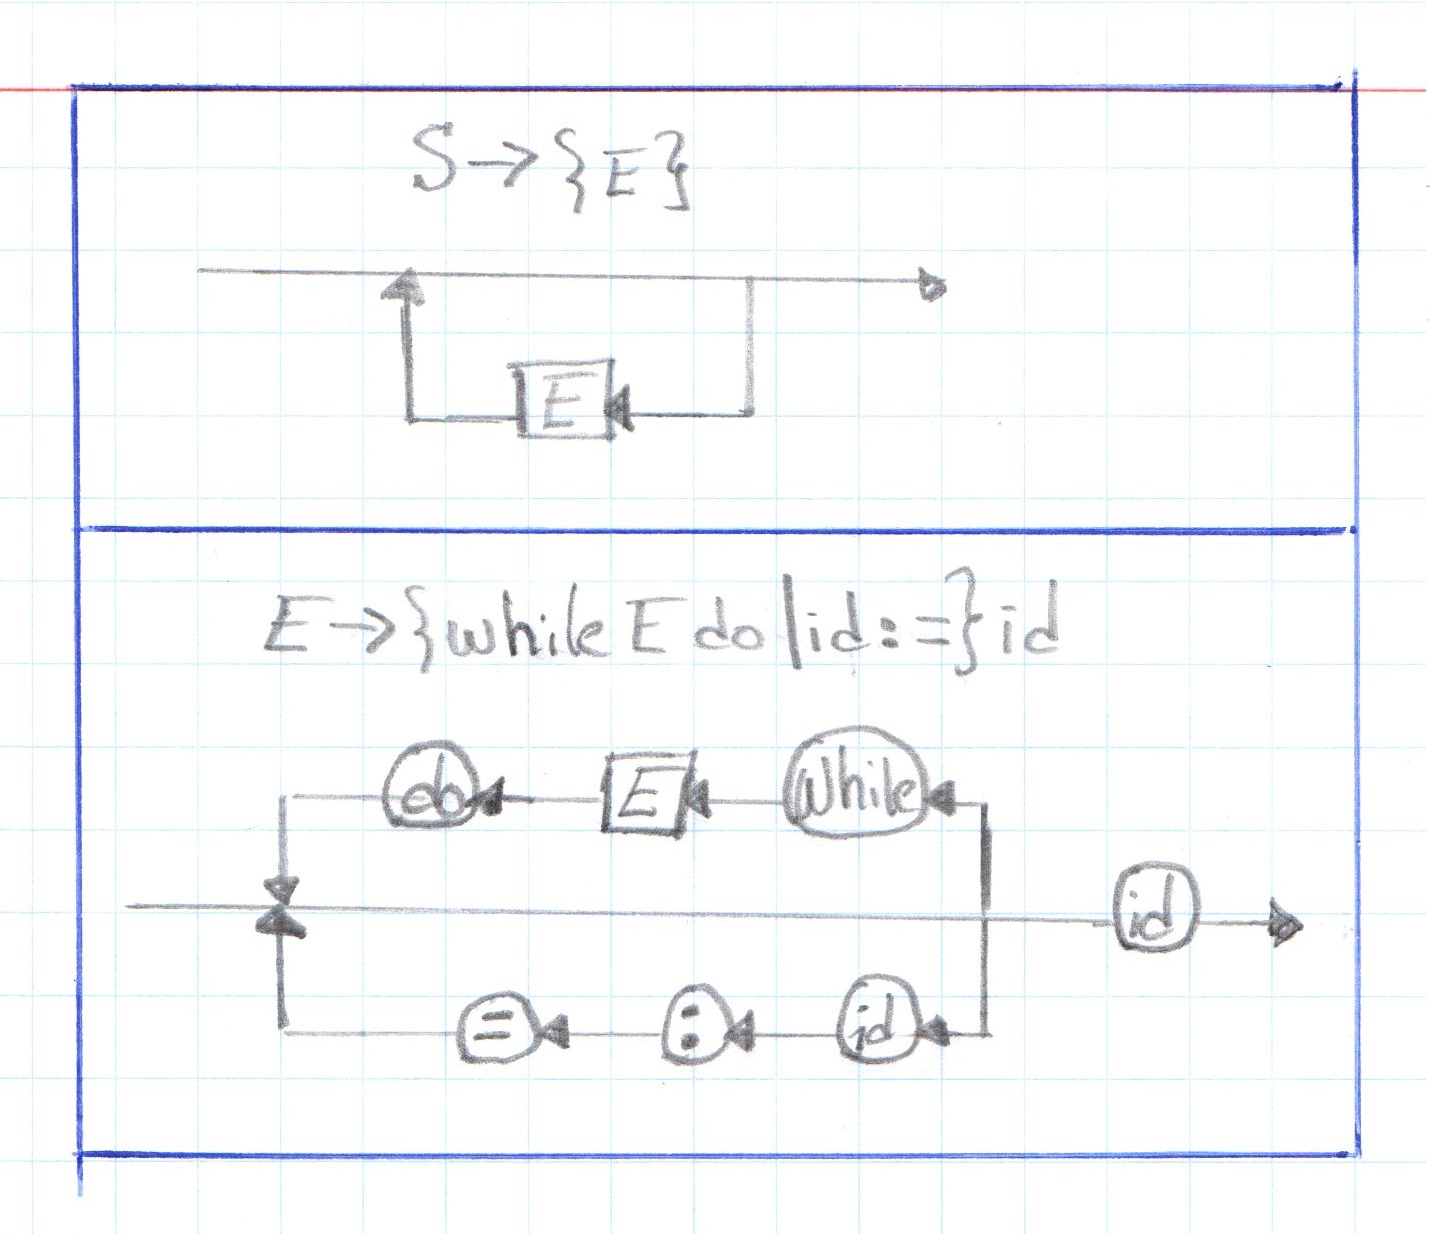 S→{E}
E
E→{while E do|id:=}id
do E while
id
= : id